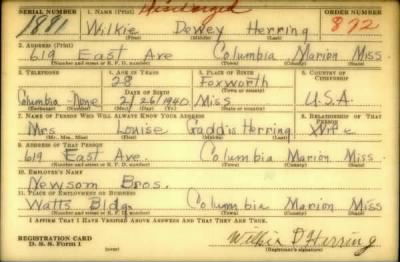 Discharged
SERIAL NUMBER 1. NAME (Print) ORDER NUMBER
1891 Wilkie Dewey Herring 872
(First) (Middle) (Last)
2. ADDRESS (Print)
619 East Ave Columbia Marion Miss.
(Number and street or R. F. D. number) (Town) (County) (State)
3. TELEPHONE 4. AGE IN YEARS 5. PLACE OF BIRTH 6. COUNTRY OF CITIZENSHIP
28 Foxworth
DATE OF BIRTH
Columbia-None 2/26/1940 Miss U.S.A.
(Exchange) (Number) (Mo.) (Day) (Yr.) (State or country)
7. NAME OF PERSON WHO WILL ALWAYS KNOW YOUR ADDRESS 8. RELATIONSHIP OF THAT PERSON
Mrs. Louise Gaddis Herring Wife
(Mr., Mrs., Miss) (First) (Middle) (Last)
9. ADDRESS OF THAT PERSON
619 East Ave. Columbia Marion Miss.
(Number and street or R. F. D. number) (Town) (County) (State)
10. EMPLOYER'S NAME
Newsom Bros.
11. PLACE OF EMPLOYMENT OR BUSINESS
Watts Bldg. Columbia Marion Miss
(Number and street or R. F. D. number) (Town) (County) (State)
I AFFIRM THAT I HAVE VERIFIED ABOVE ANSWERS AND THAT THEY ARE TRUE.
REGISTRATION CARD
D. S. S. Form 1
Wilkie D Herring
(Registrant's signature)